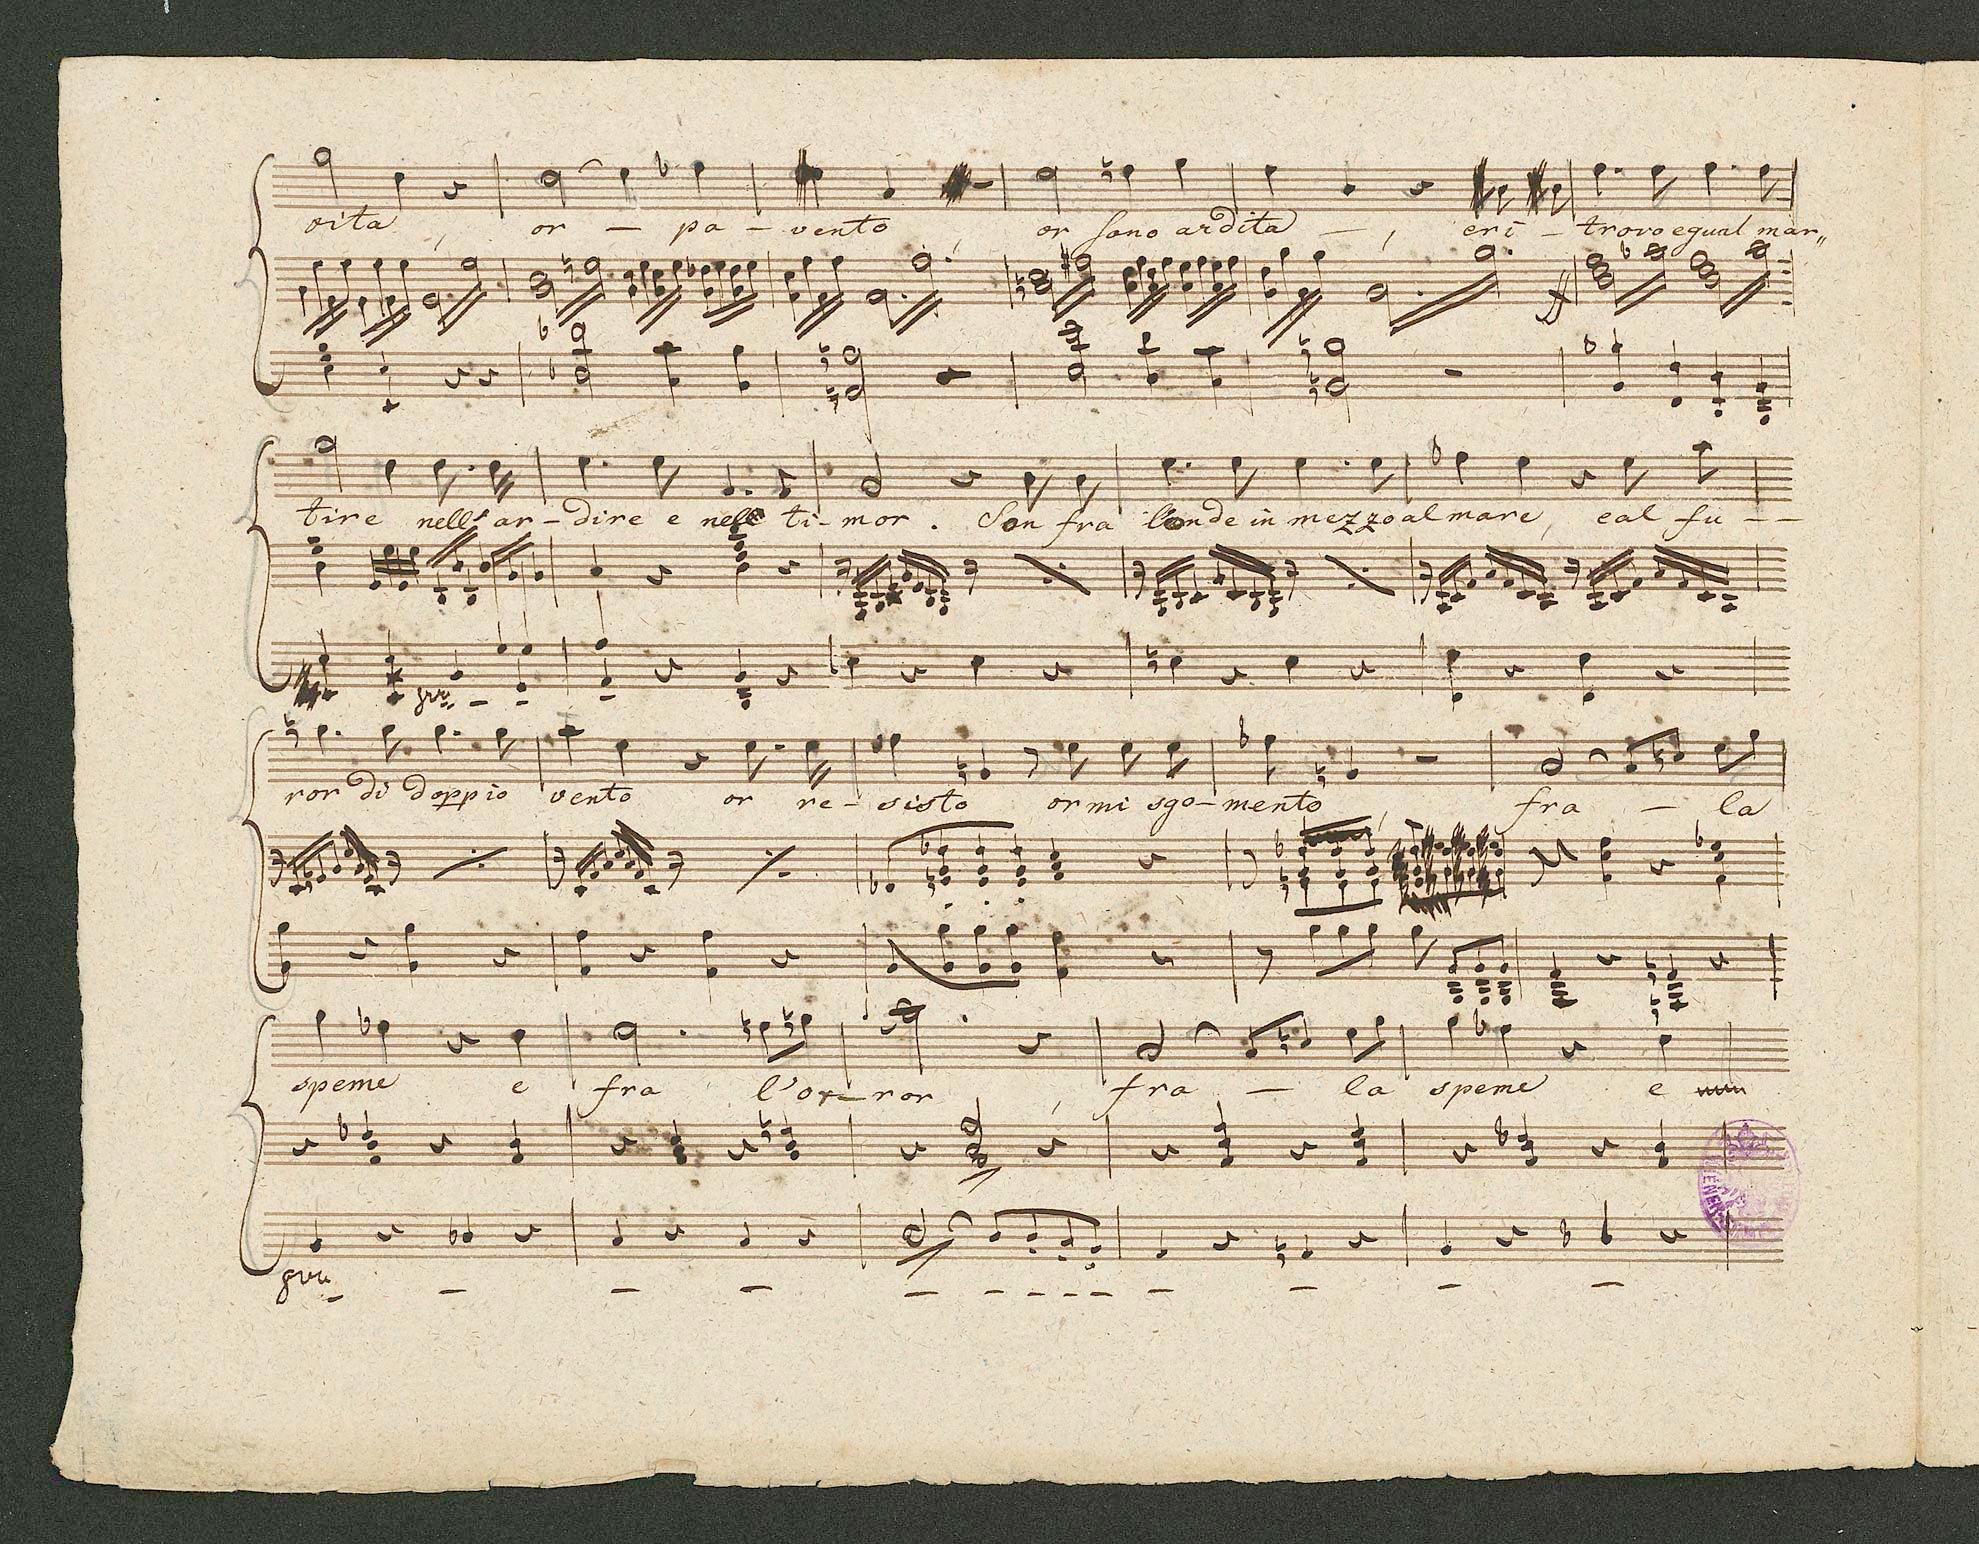 vita, or - pa - vento or sono ardita -, e ri - trovo egual mar„
ff
tire nell' ar - dire e nell ti - mor. Son fra l'onde in mezzo al mare, e al fu - -
8va - -
ror di doppio vento or re - sisto or mi sgo - mento, fra - la
speme e fra l'or - ror, fra - la speme e
8va - - - - - - - - - - - - -